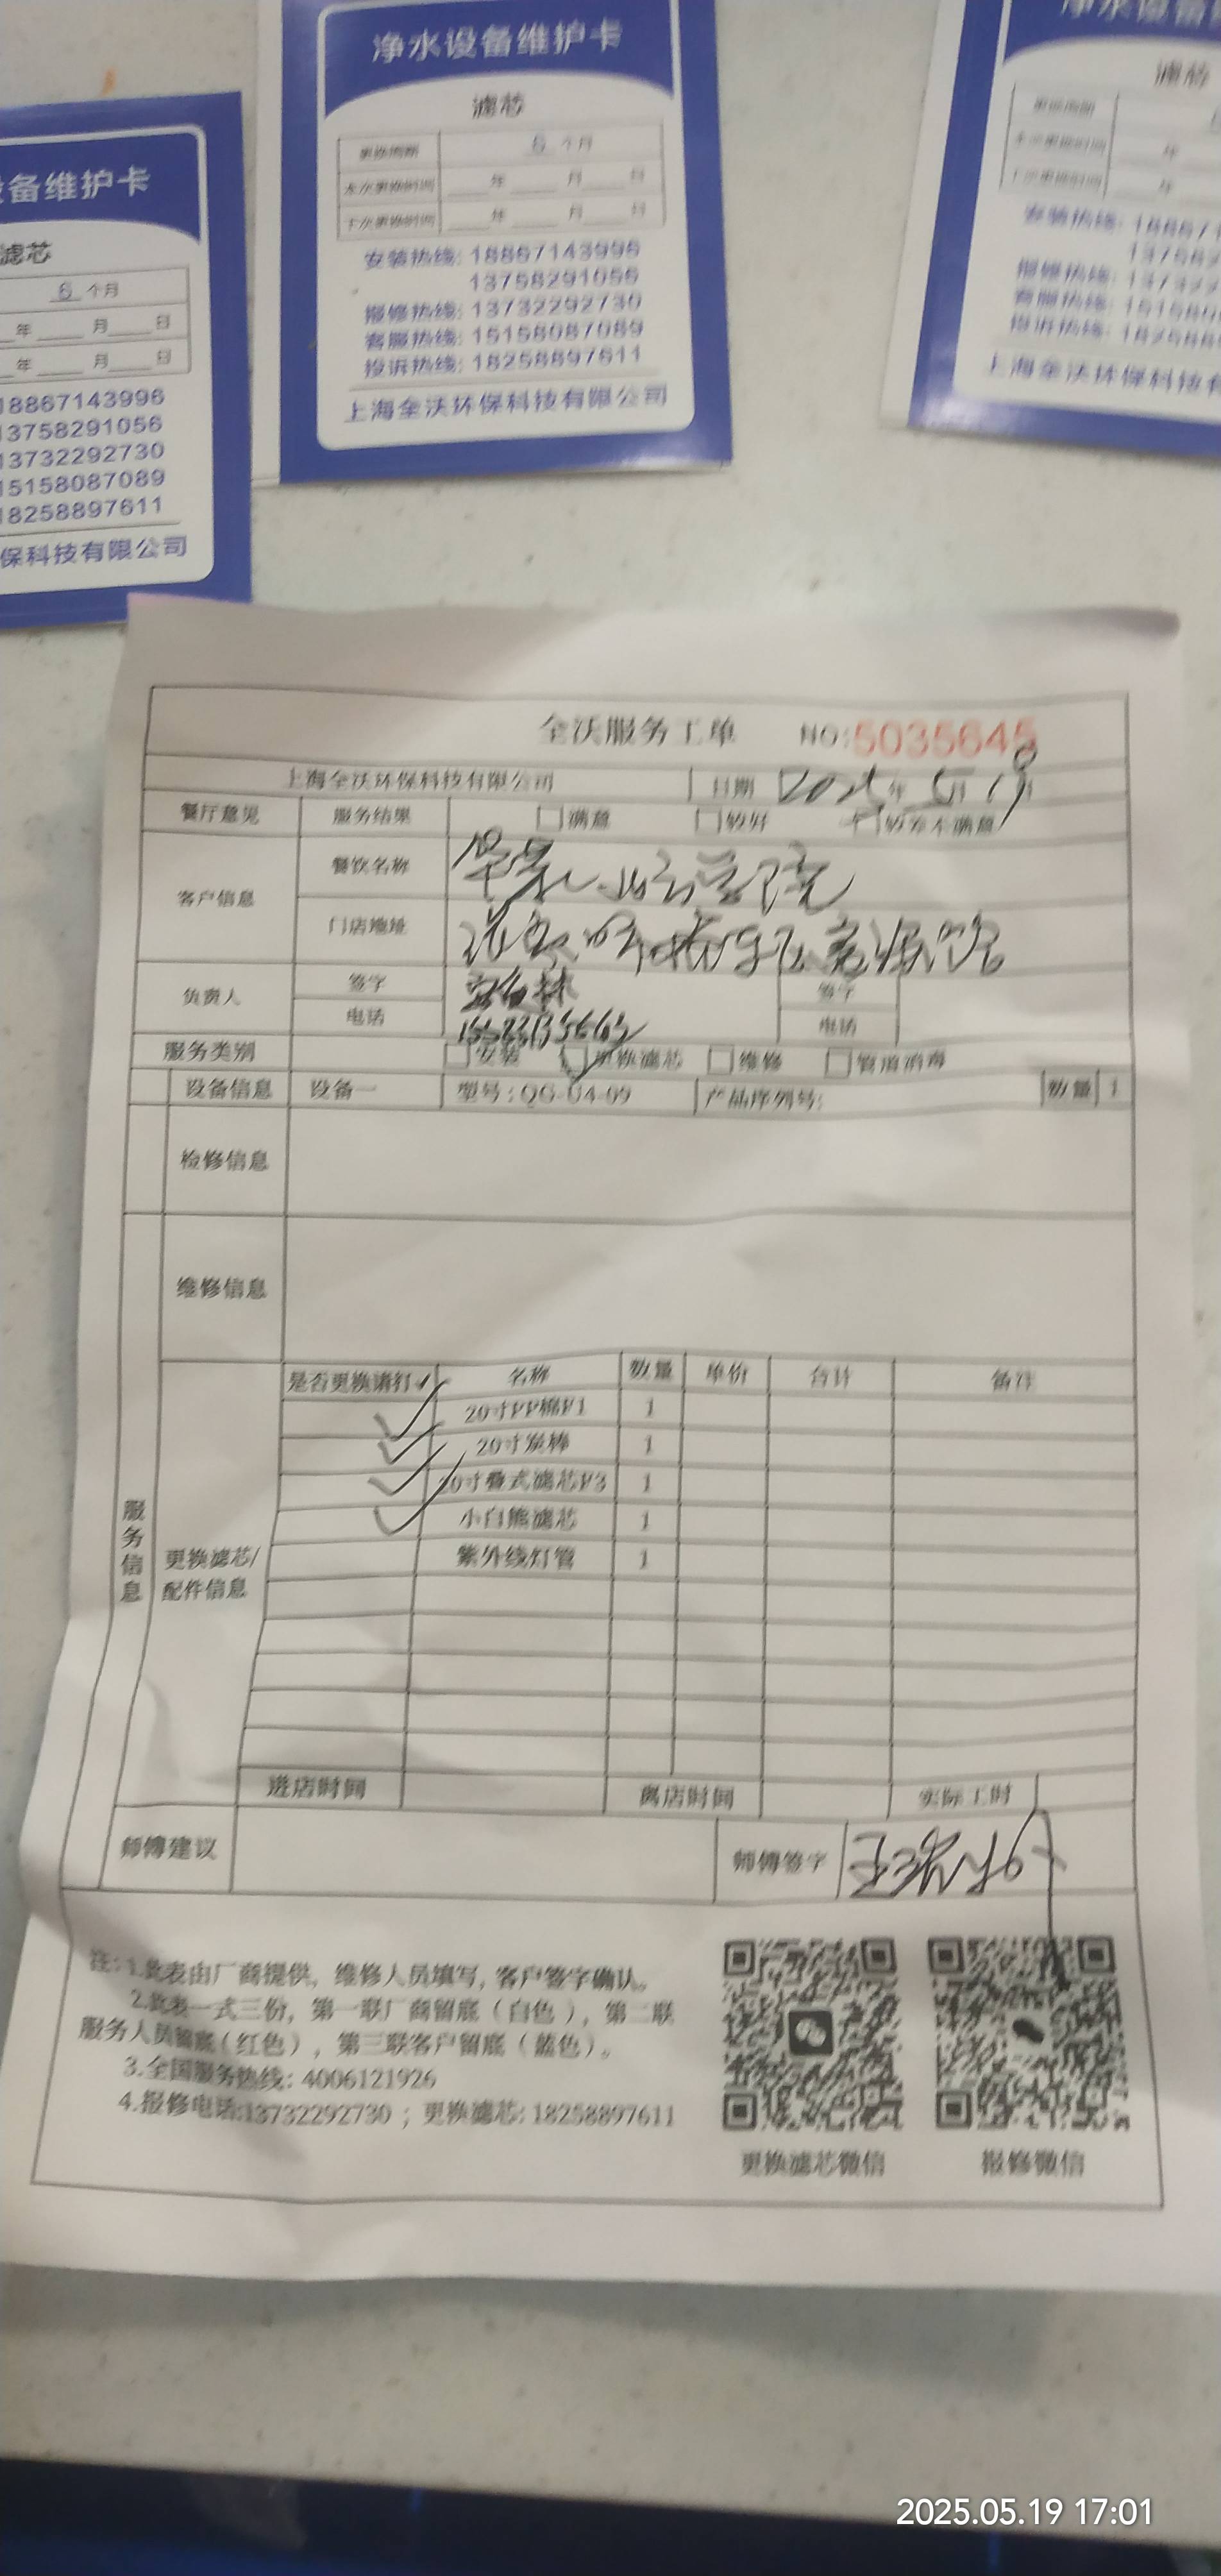 净水设备维护卡
滤芯
更换周期 6 个月
本次更换时间 年 月 日
下次更换时间 年 月 日
安装热线: 18867143996
13758291056
报修热线: 13732292730
客服热线: 15158087089
投诉热线: 18258897611
上海全沃环保科技有限公司
备维护卡
滤芯
6 个月
年 月 日
年 月 日
18867143996
13758291056
13732292730
15158087089
18258897611
保科技有限公司
净水设备
滤芯
更换周期
本次更换时间 年
下次更换时间 年
安装热线: 188671
报修热线:
客服热线:
投诉热线:
上海全沃环保科技有
全沃服务工单 NO:5035645
上海全沃环保科技有限公司 日期 2025年5月19日
餐厅意见 服务结果 满意 较好 较差不满意
客户信息 餐饮名称
门店地址
负责人 签字 签字
电话 电话
服务类别 安装 更换滤芯 维修 管道消毒
设备信息 设备一 型号:QG-U4-09 产品序列号: 数量 1
检修信息
维修信息
服务信息
更换滤芯/配件信息
是否更换请打✓ 名称 数量 单价 合计 备注
✓ 20寸PP棉P1 1
✓ 20寸炭棒 1
✓ 20寸叠式滤芯P3 1
✓ 小白熊滤芯 1
紫外线灯管 1
进店时间 离店时间 实际工时
师傅建议 师傅签字
注: 1.此表由厂商提供, 维修人员填写, 客户签字确认。
2.此表一式三份, 第一联厂商留底(白色), 第二联
服务人员留底(红色), 第三联客户留底(蓝色)。
3.全国服务热线: 4006121926
4.报修电话:13732292730 ; 更换滤芯: 18258897611
更换滤芯微信 报修微信
2025.05.19 17:01